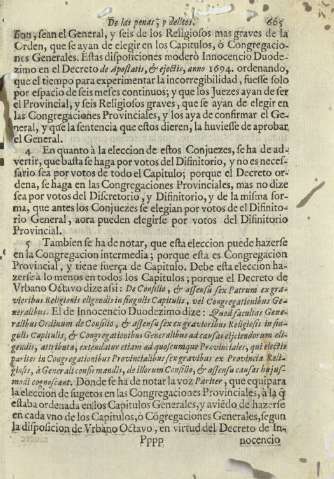 De las penas, y delitos. 665
son, sean el General, y seis de los Religiosos mas graves de la
Orden, que se ayan de elegir en los Capitulos, ò Congregacio-
nes Generales. Estas disposiciones moderò Innocencio Duode-
zimo en el Decreto de Apostatis, & ejectis, anno 1694. ordenando,
que el tiempo para experimentar la incorregibilidad, fuesse solo
por espacio de seis meses continuos; y que los Juezes ayan de ser
el Provincial, y seis Religiosos graves, que se ayan de elegir en
las Congregaciones Provinciales, y los aya de confirmar el Ge-
neral, y que la sentencia que estos dieren, la huviesse de aprobar
el General.
4 En quanto à la eleccion de estos Conjuezes, se ha de ad-
vertir, que basta se haga por votos del Difinitorio, y no es neces-
sario sea por votos de todo el Capitulo; porque el Decreto or-
dena, se haga en las Congregaciones Provinciales, mas no dize
sea por votos del Discretorio, y Difinitorio, y de la misma for-
ma, que antes los Conjuezes se elegian por votos de el Difinito-
rio General, aora pueden elegirse por votos del Difinitorio
Provincial.
5 Tambien se ha de notar, que esta eleccion puede hazerse
en la Congregacion intermedia; porque esta es Congregacion
Provincial, y tiene fuerça de Capitulo. Debe esta eleccion ha-
zerse à lo menos en todos los Capitulos; porque el Decreto de
Urbano Octavo dize assi: De Consilio, & assensu sex Patrum ex gra-
vioribus Religionis eligendis in singulis Capitulis, vel Congregationibus Ge-
neralibus. El de Innocencio Duodezimo dize: Quod facultas Gene-
ralibus Ordinum de Consilio, & assensu sex ex gravioribus Religiosis in sin-
gulis Capitulis, & Congregationibus Generalibus ad causas ejiciendorum eli-
gendis, attributa, extendatur etiam ad quoscumque Provinciales, qui electis
pariter in Congregationibus Provincialibus sex gravibus ex Provincia Reli-
giosis, à Generali confirmandis, de illorum Consilio, & assensu causas hujus-
modi cognoscant. Donde se ha de notar la voz Pariter, que equipara
la eleccion de sugetos en las Congregaciones Provinciales, à la q̃
estaba ordenada en los Capitulos Generales, y aviẽdo de hazerse
en cada vno de los Capitulos, ò Cõgregaciones Generales, segun
la disposicion de Vrbano Octavo, en virtud del Decreto de In-
Pppp nocencio